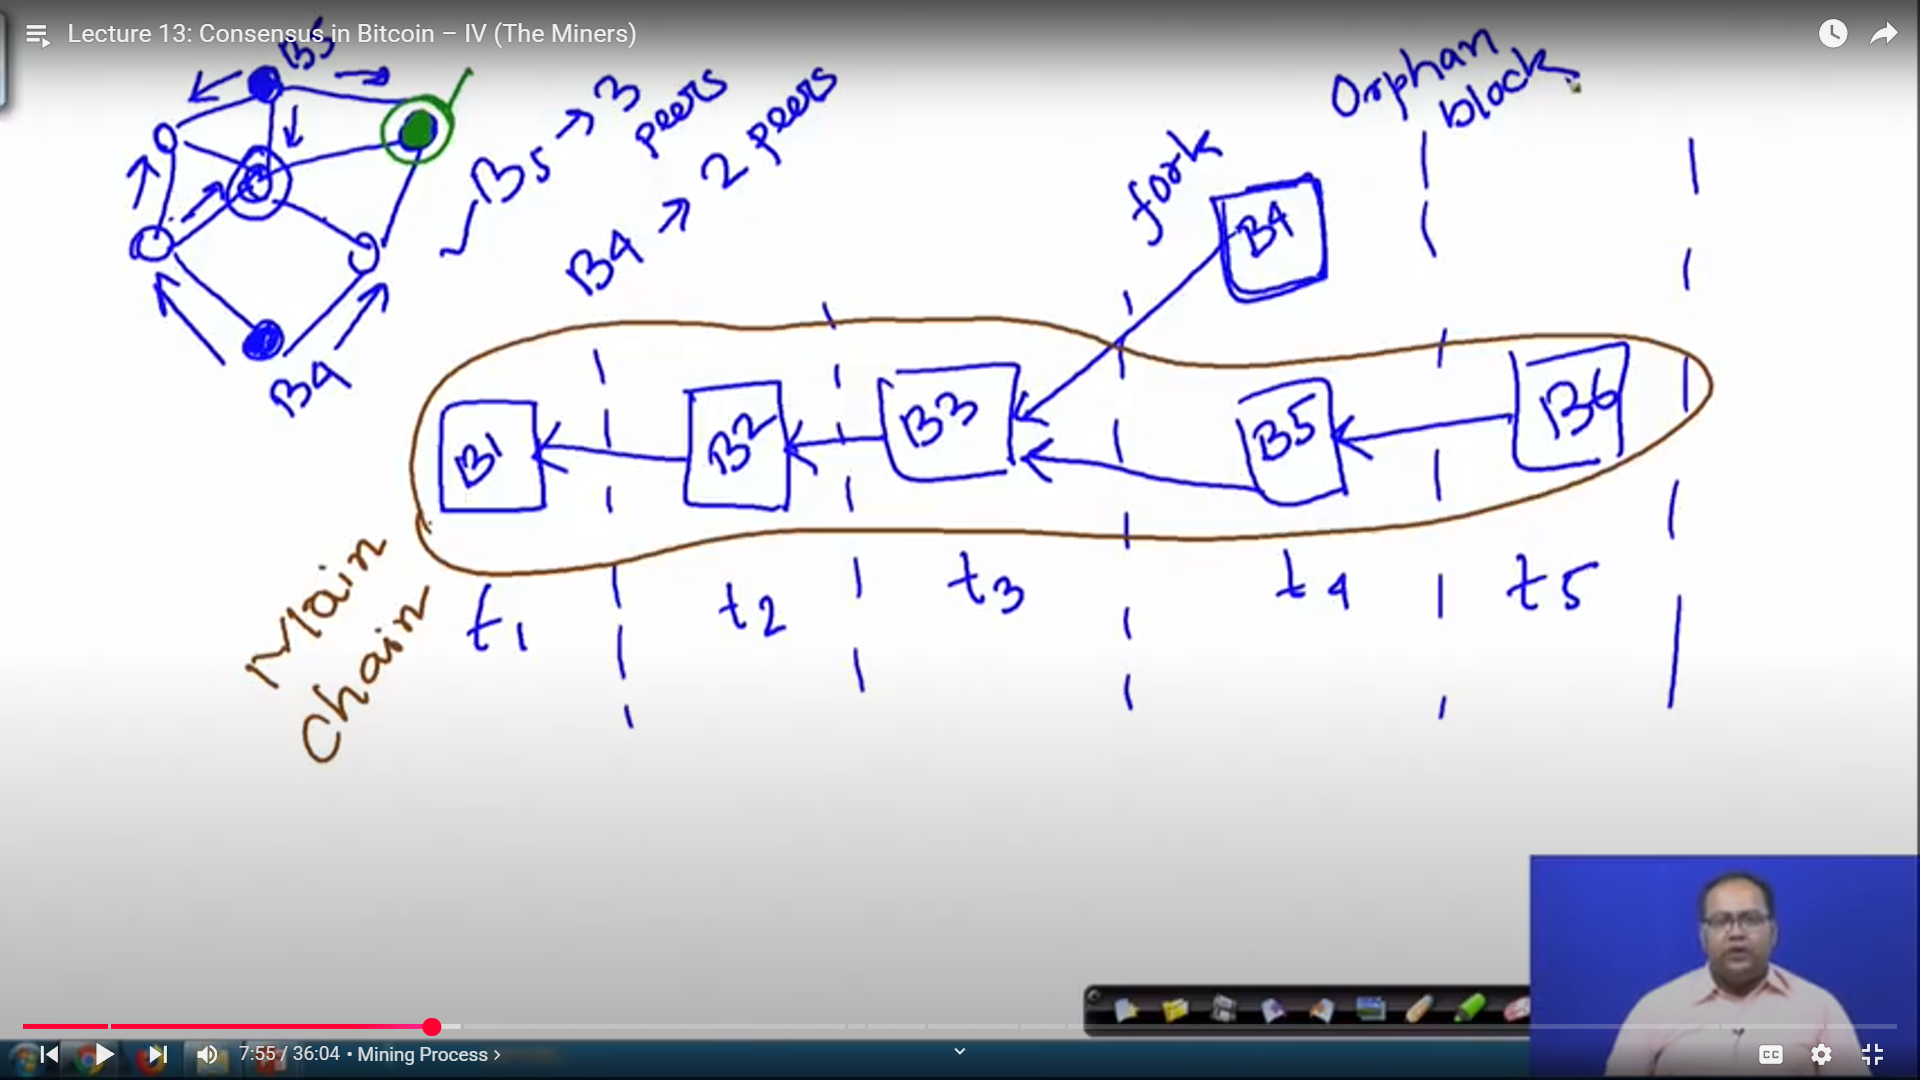 Lecture 13: Consensus in Bitcoin – IV (The Miners)
B5
B5 → 3 peers
B4 → 2 peers
B4
fork
Orphan
block
B4
B1
B2
B3
B5
B6
t1
t2
t3
t4
t5
Main
Chain
7:55 / 36:04 • Mining Process ›
CC